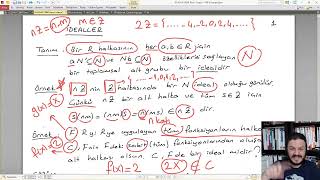 nZ = n.m   m∈Z   2Z = {.... -4,-2,0,2,4,....}   1
İDEALLER
Tanım: Bir R halkasının her a,b∈R için
aN ⊆ N ve Nb ⊆ N özelliklerini sağlayan N
bir toplamsal alt grubu bir idealdir.
-4 -2,0,2,4
Örnek: nZ nin Z halkasında bir N ideal olduğu görülür.
g(x)=x Çünkü nZ bir alt halka ve tüm s∈Z için
s(nm) = (nm)s = n(ms) ∈ nZ dir.
Örnek: F, R yi R ye uygulayan tüm fonksiyonların halkası
C, F nin tüm sabit fonksiyonlarından oluşan
alt halkası olsun. C, F de bir ideal midir?
f(x)=2   2X ∉ C